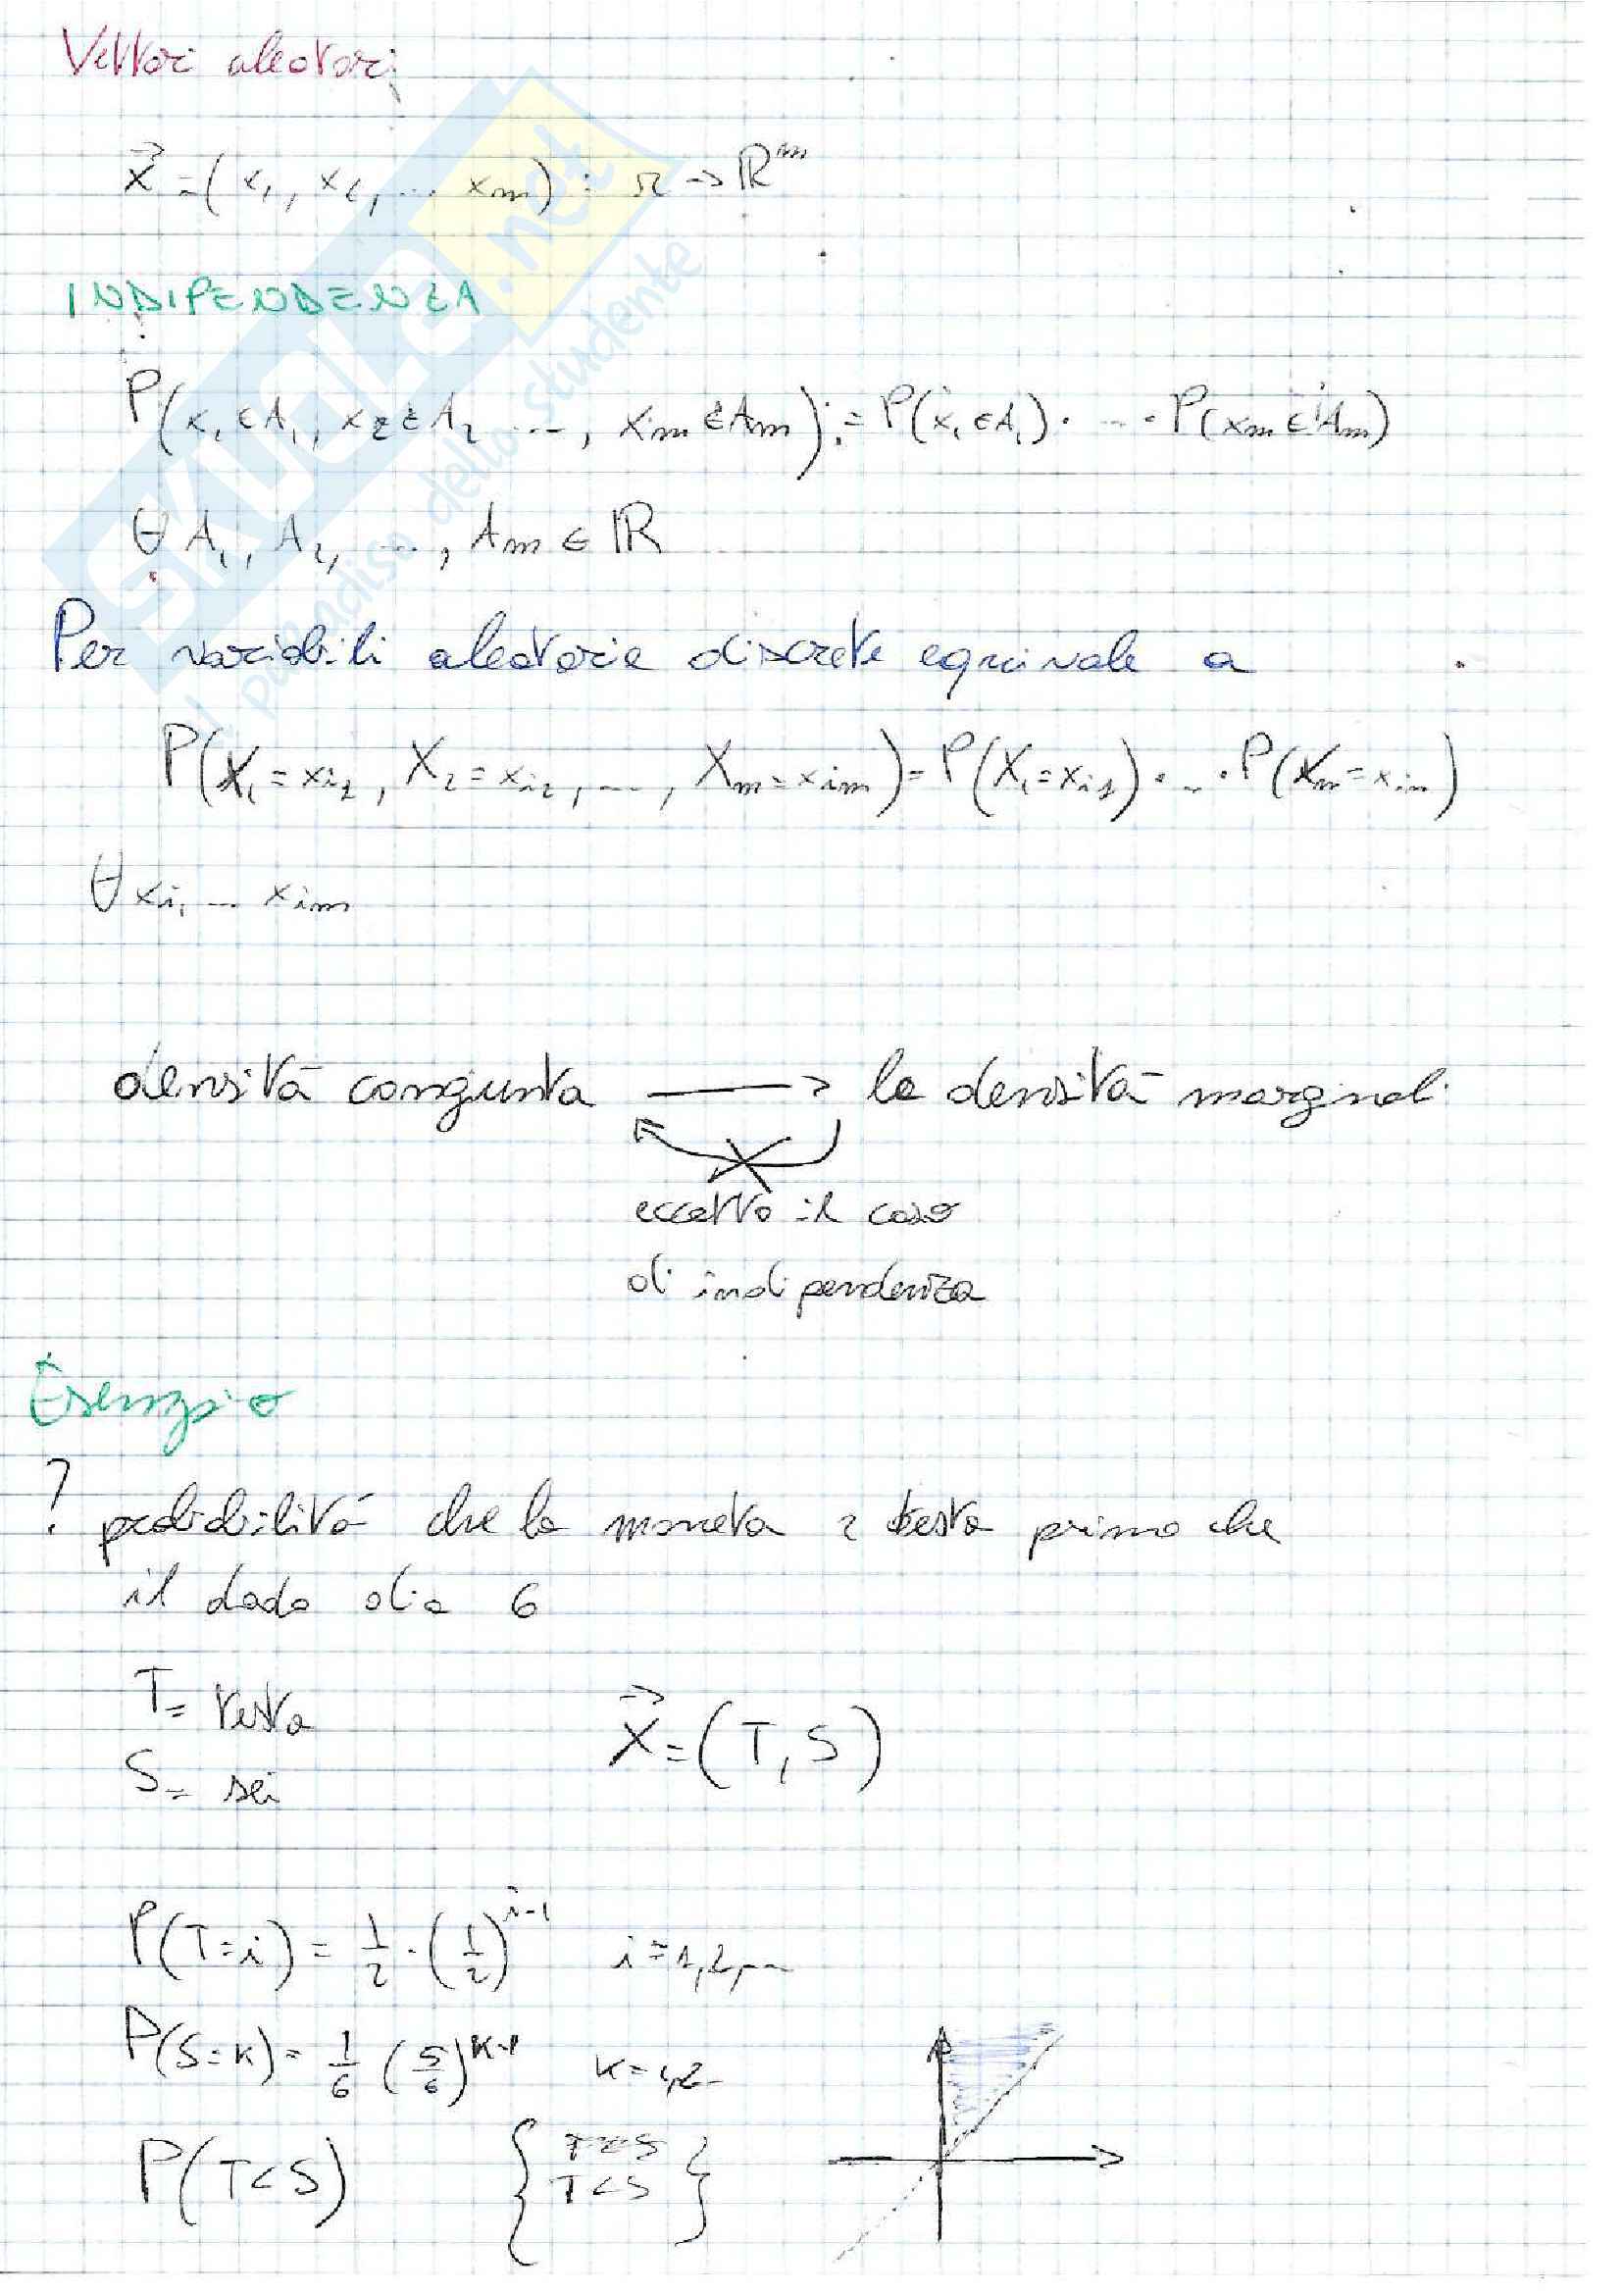 Vettori aleatori
X⃗ = (x₁, x₂, ... xₘ) : Ω → ℝᵐ
INDIPENDENZA
P(x₁ ∈ A₁, x₂ ∈ A₂ ..., xₘ ∈ Aₘ) := P(x₁ ∈ A₁) · ... · P(xₘ ∈ Aₘ)
∀ A₁, A₂, ..., Aₘ ∈ ℝ
Per variabili aleatorie discrete equivale a
P(X₁ = xi₁, X₂ = xi₂, ..., Xₘ = xiₘ) = P(X₁ = xi₁) · ... · P(Xₘ = xiₘ)
∀ xi₁ ... xiₘ
densità congiunta → le densità marginali
eccetto il caso
di indipendenza
Esempio
? probabilità che la moneta testa prima che
il dado dia 6
T = testa
S = sei
X⃗ = (T, S)
P(T=i) = 1/2 · (1/2)^(i-1) i = 1,2,...
P(S=K) = 1/6 (5/6)^(K-1) K = 1,2..
P(T<S) { T<S }
SKUOLA.net
il paradiso dello studente